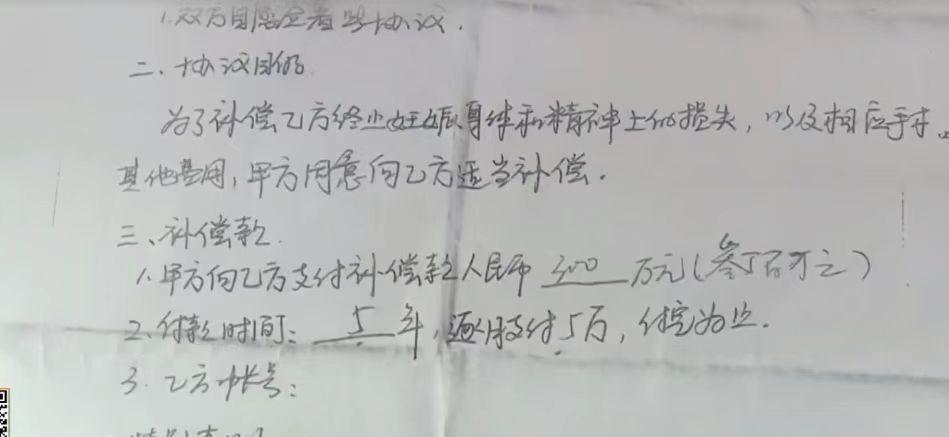 1.双方自愿签署此协议.
二、协议目的
为了补偿乙方终止妊娠身体和精神上的损失,以及相应手术、
其他费用,甲方同意向乙方适当补偿.
三、补偿款
1.甲方向乙方支付补偿款人民币 300 万元(叁佰万元)
2.付款时间: 5 年,逐月支付5万,付完为止.
3.乙方帐号: